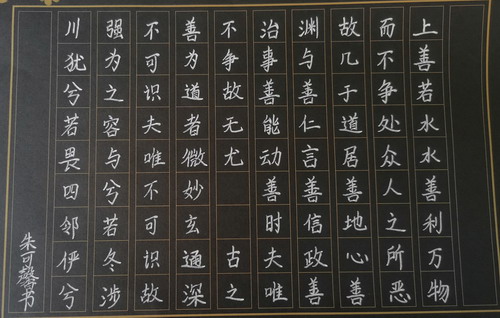 上善若水水善利万物
而不争处众人之所恶
故几于道居善地心善
渊与善仁言善信政善
治事善能动善时夫唯
不争故无尤 古之
善为道者微妙玄通深
不可识夫唯不可识故
强为之容与兮若冬涉
川犹兮若畏四邻俨兮
朱可书